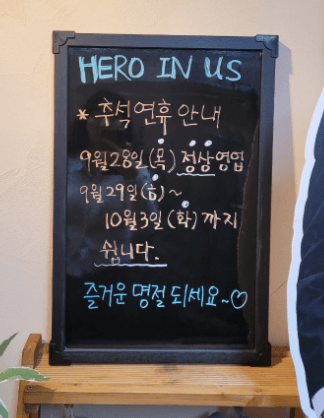 HERO IN US
* 추석 연휴 안내
9월 28일 (목) 정상영업
9월 29일 (금) ~
10월 3일 (화) 까지
쉽니다.
즐거운 명절 되세요~♡